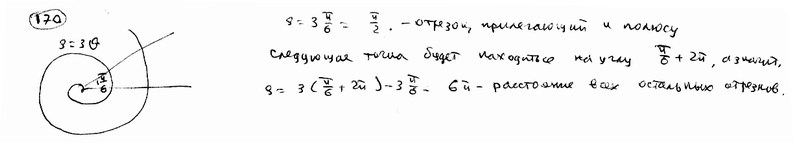 170
ρ = 3 π/6 = π/2. – отрезок, прилегающий к полюсу
ρ = 3θ
следующая точка будет находиться на углу π/6 + 2π, а значит,
π/6
ρ = 3 (π/6 + 2π) – 3 π/6 = 6π – расстояние всех остальных отрезков.